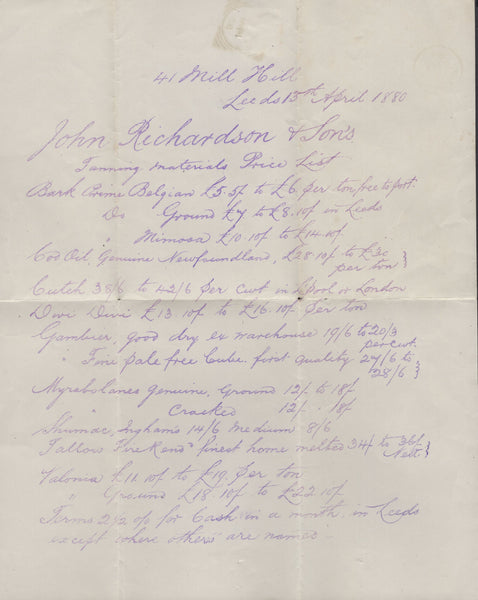 41 Mill Hill
Leeds 15th April 1880
John Richardson & Sons
Tanning Materials Price List
Bark Prime Belgian £5.5/- to £6. per ton free to port.
Do Ground £7 to £8.10/- in Leeds
" Mimosa £10.10/- to £14.10/-
Cod Oil, Genuine Newfoundland, £28.10/- to £30
per ton }
Cutch 38/6 to 42/6 per Cwt in L'pool or London
Divi Divi £13.10/- to £16.10/- per ton
Gambier, good dry ex warehouse 19/6 to 20/3
per cwt.
" Fine pale free Cube. first quality 27/6 to
28/6 }
Myrabolanes genuine, Ground 12/- to 18/-
" Cracked 12/- " 18/-
Shumac, Inghams 14/6 Medium 8/6
Tallows Fine Rend^d finest home melted 34/- to 36/-
Nett }
Valonia £11.10/- to £19. per ton
" Ground £18.10/- to £22.10/-
Terms 2½ o/o for Cash in a month in Leeds
except where others are named